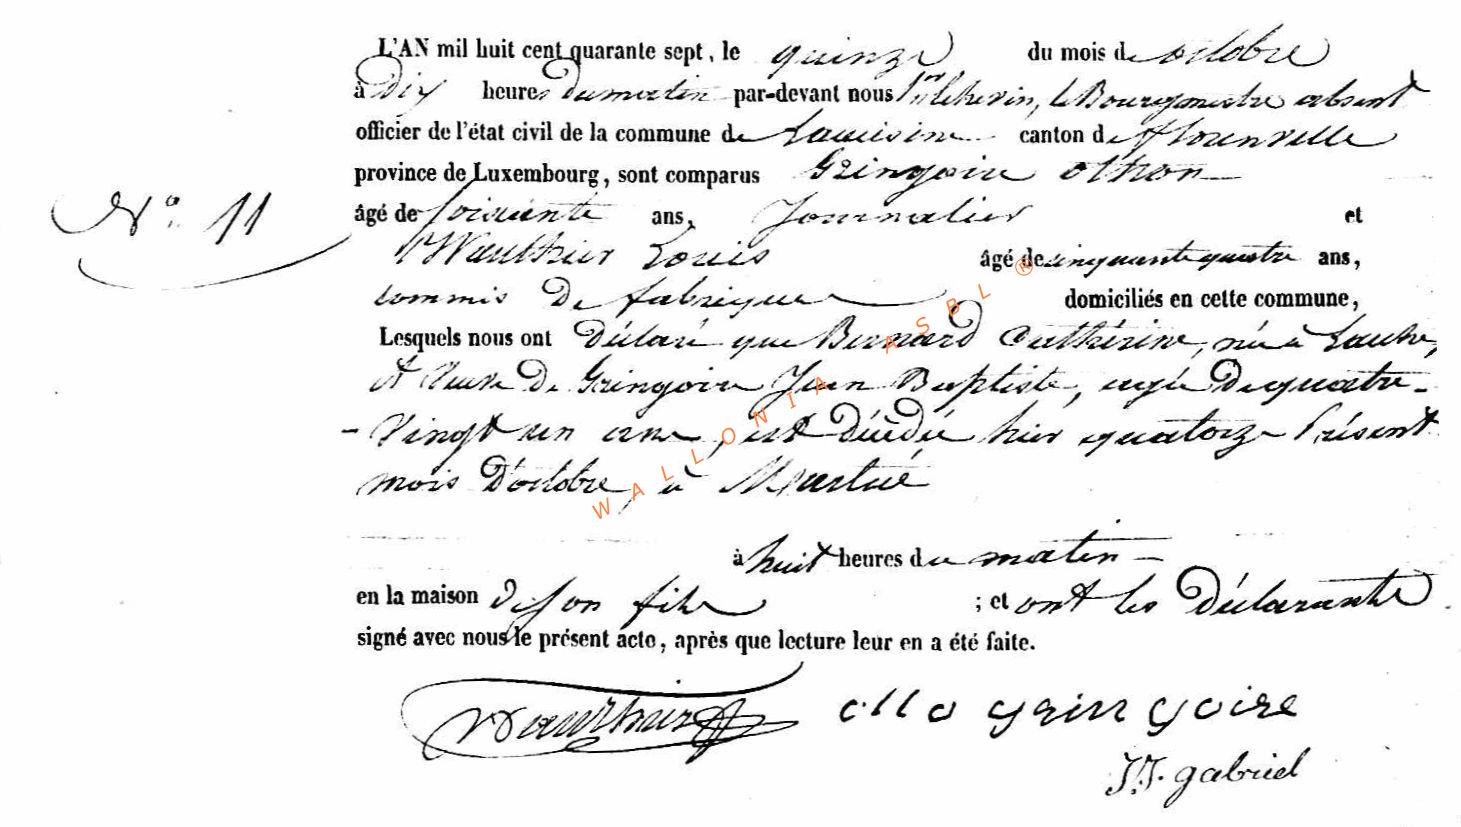 L'AN mil huit cent quarante sept, le quinze du mois de octobre
à Dix heures du matin par-devant nous 1er Echevin, le Bourgmestre absent
officier de l'état civil de la commune de Lacuisine canton de florenville
province de Luxembourg, sont comparus Gringoire othon
N° 11
âgé de soixante ans, Journalier et
Wauthier Louis âgé de cinquante quatre ans,
commis De fabrique domiciliés en cette commune,
Lesquels nous ont Déclaré que Bernard Cathérine, née à
Et Veuve De Gringoire Jean Baptiste, agée De quatre-
-Vingt un ans, est Décédée hier quatorze Présent
mois D'octobre, à Martué
à huit heures du matin
en la maison De son fils ; et ont les Déclarants
signé avec nous le présent acte, après que lecture leur en a été faite.
Wauthier otto gringoire
J.J. gabriel
WALLONIA ASBL ®